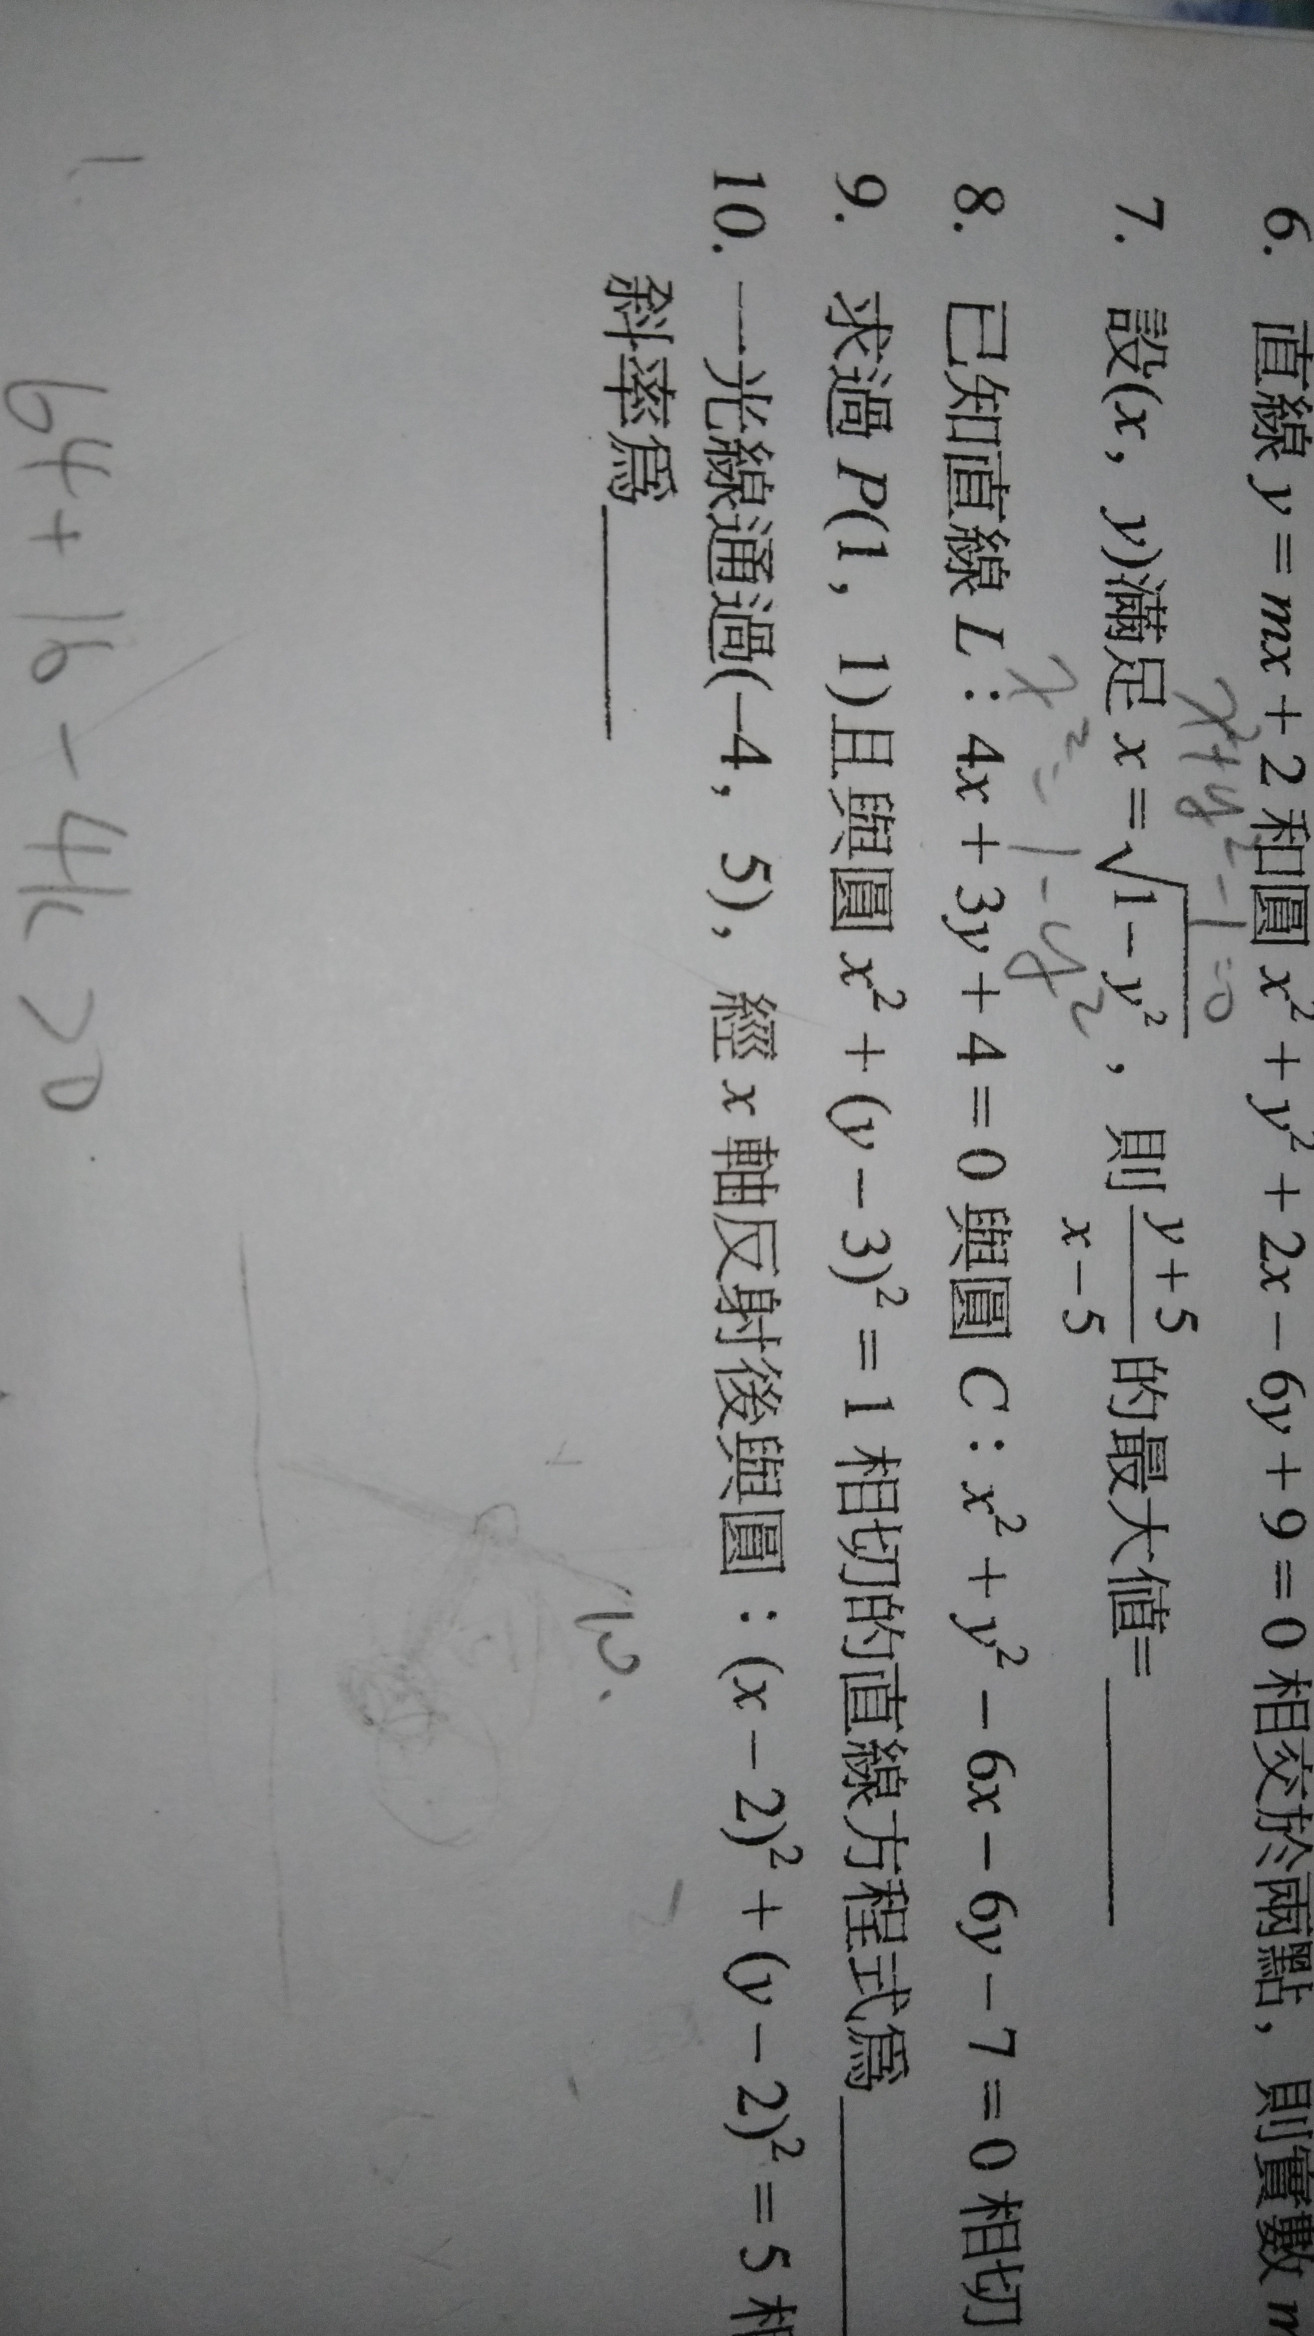 6. 直線 y = mx + 2 和圓 x² + y² + 2x − 6y + 9 = 0 相交於兩點，則實數 m
x² + y² − 1 = 0
7. 設(x，y)滿足 x = √(1 − y²)，則 (y + 5)/(x − 5) 的最大值=______
x² = 1 − y²
8. 已知直線 L：4x + 3y + 4 = 0 與圓 C：x² + y² − 6x − 6y − 7 = 0 相切
9. 求過 P(1，1)且與圓 x² + (y − 3)² = 1 相切的直線方程式爲______
10. 一光線通過(−4，5)，經 x 軸反射後與圓：(x − 2)² + (y − 2)² = 5 相
斜率爲______
10.
1.
64 + 16 − 4k > 0